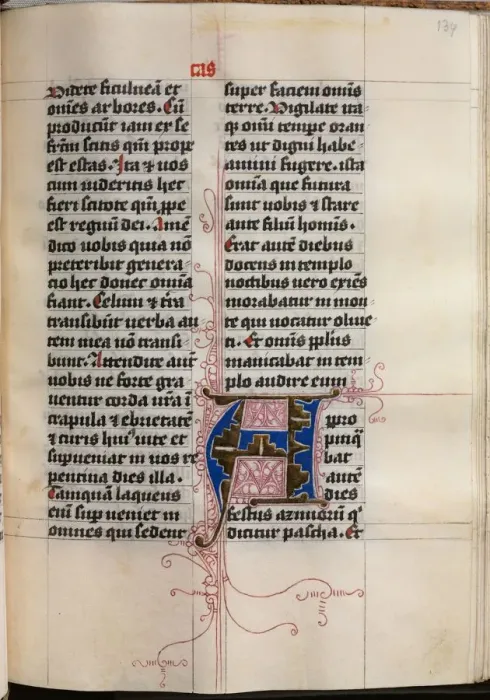 134
cas
Videte ficulneā et
om̄es arbores. Cū
producūt iam ex se
fr̄cm scitis qm̄ prope
est estas. Ita ⁊ vos
cum videritis hec
fieri scitote qm̄ ꝓpe
est regnū dei. Amē
dico vobis quia nō
preteribit genera
cio hec donec omīa
fiant. Celum ⁊ tr̄a
transibūt verba au
tem mea nō transi
bunt. Attendite aut̄
vobis ne forte gra
ventur corda vr̄a ī
crapula ⁊ ebrietate
⁊ curis huiꝰ vite et
supveniat in vos re
pentina dies illa.
Tamquā laqueus
enī supveniet in
omnes qui sedent
super faciem om̄is
terre. Vigilate ita
qꝫ om̄i tempe oran
tes ut digni habe
amini fugere. ista
omīa que futura
sunt vobis ⁊ stare
ante filiū homīs.
Erat autē diebus
docens in templo
noctibus vero exiēs
morabatur in mon
te qui vocatur olive
ti. Et om̄is pplūs
manicabat in tem
plo audire eum
Appro
pinq̄
bat
autē
dies
festus azimorū q'
dicitur pascha. Et